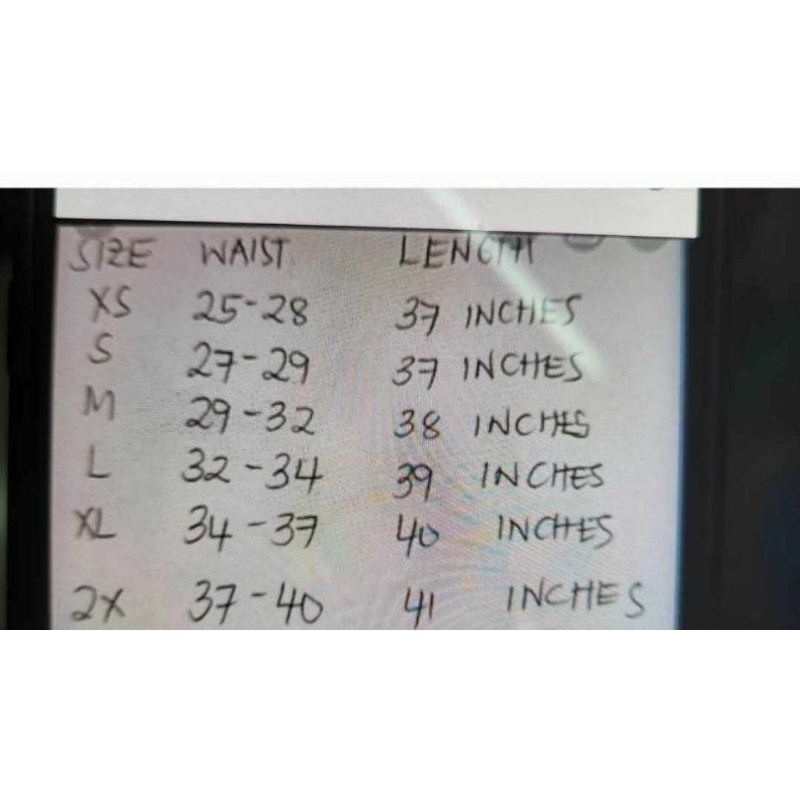 SIZE WAIST LENGTH
XS 25-28 37 INCHES
S 27-29 37 INCHES
M 29-32 38 INCHES
L 32-34 39 INCHES
XL 34-37 40 INCHES
2X 37-40 41 INCHES